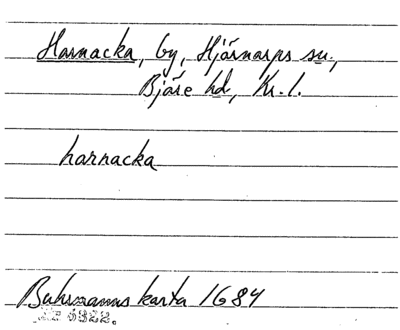 Harnacka, by, Hjärnarps sn.,
Bjäre hd, Kr. l.
harnacka
Buhrmanns karta 1684